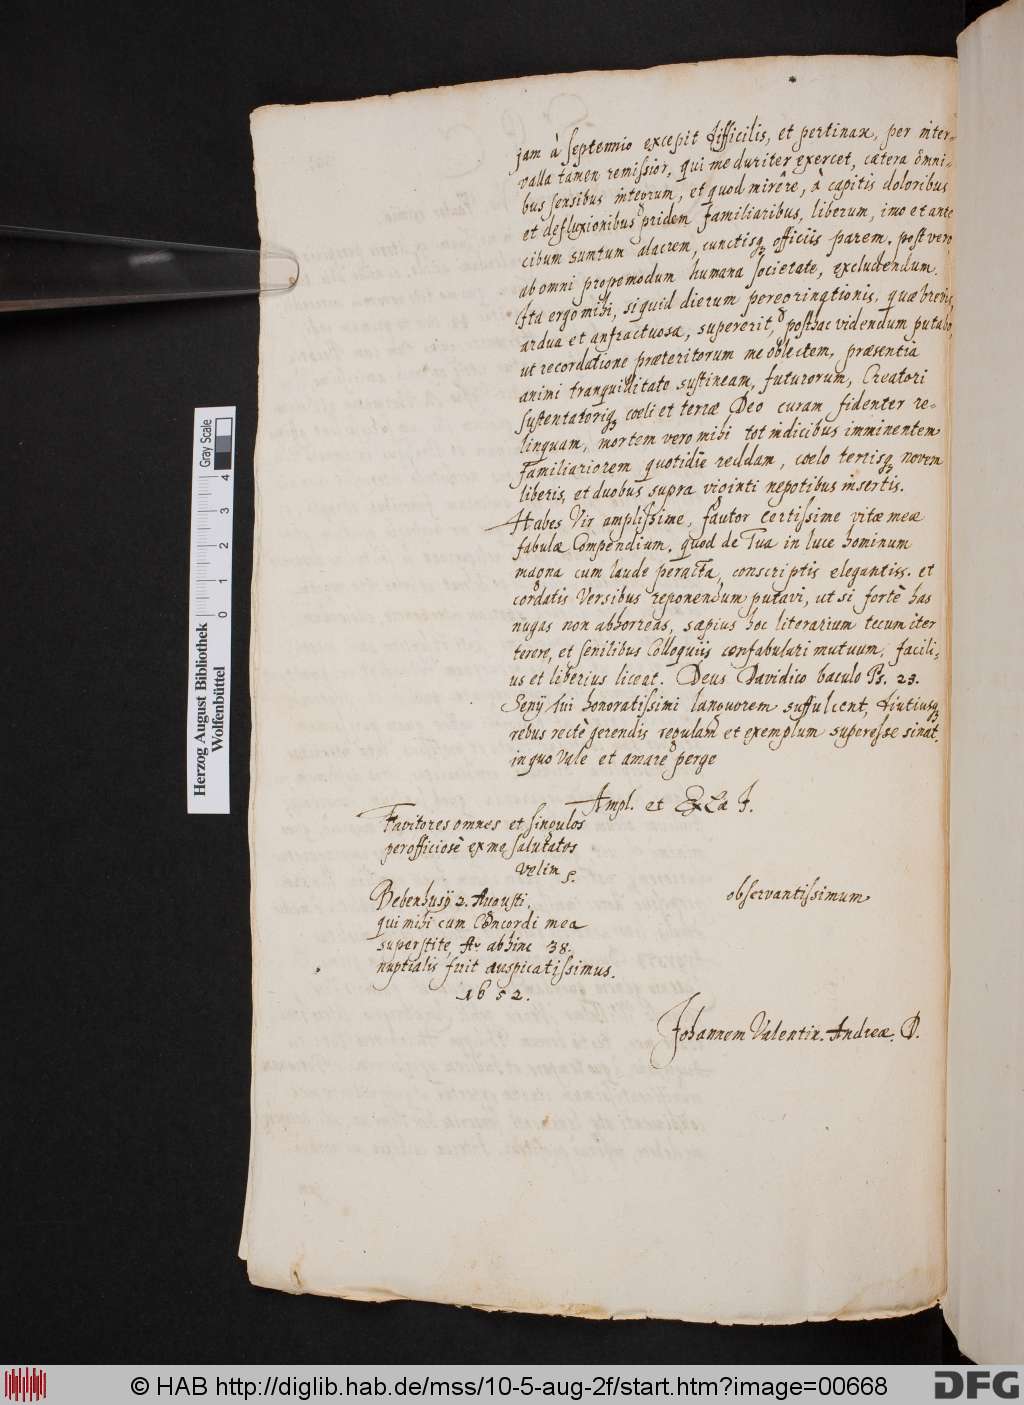 jam à septennio excepit difficilis, et pertinax, per inter-
valla tamen remissior, qui me duriter exercet, cætera omni-
bus sensibus integrum, et quod mirêre, à capitis doloribus
et defluxionibus pridem familiaribus, liberum, imo et ante
cibum sumtum alacrem, cunctisq officiis parem. post vero
ab omni propemodum humana societate, excludendum.
Ita ergo mihi, si quid dierum peregrinationis, quæ brevis,
ardua et anfractuosa, supererit, posthac videndum putabo,
ut recordatione præteritorum me oblectem, præsentia
animi tranquillitate sustineam, futurorum, Creatori
sustentatoriq coeli et terræ Deo curam fidenter re-
linquam, mortem vero mihi tot indicibus imminentem
familiariorem quotidie reddam, coelo terrisq novem
liberis, et duobus supra viginti nepotibus insertis.
Habes Vir amplissime, fautor certissime vitæ meæ
fabulæ Compendium. quod de Tua in luce hominum
magna cum laude peracta, conscriptis elegantiss. et
cordatis Versibus reponendum putavi, ut si fortè has
nugas non abhorreas, sæpius hoc literarium tecum iter
terere, et senilibus Colloquiis confabulari mutuum, facili-
us et liberius liceat. Deus Davidico baculo Ps. 23.
Senij sui honoratissimi languorem suffulcent, diutiusq
rebus rectè gerendis regulam et exemplum superesse sinat.
in quo Vale et amare perge
Ampl. et
Favitores omnes et singulos
perofficiosè ex me salutatos
velim
observantissimum
Bebenhusij 2. Augusti,
qui mihi cum Concordi mea
superstite, abhinc 38.
nuptialis fuit auspicatissimus.
1652.
Johannem Valentin. Andreæ. D.
Herzog August Bibliothek
Wolfenbüttel
0 1 2 3 4
Gray Scale
© HAB http://diglib.hab.de/mss/10-5-aug-2f/start.htm?image=00668
DFG